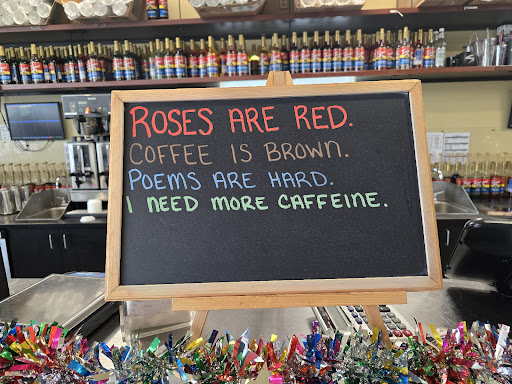 ROSES ARE RED.
COFFEE IS BROWN.
POEMS ARE HARD.
I NEED MORE CAFFEINE.